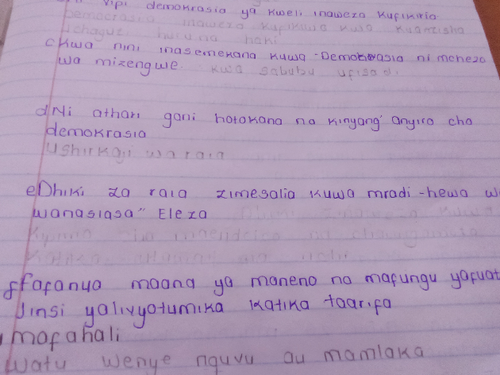 vipi demokrasia ya kweli inaweza kufikiwa
Demokrasia inaweza kufikiwa kwa kuanzisha
haki
c kwa nini inasemekana kuwa - Demokrasia ni mchezo
wa mizengwe kwa sababu ufisadi
d Ni athari gani hotokana na kinyang'anyiro cha
demokrasia
Ushirkaji wa raia
e Dhiki za raia zimesalia kuwa mradi - hewa w
wanasiasa" Eleza
katika
f fafanya maana ya maneno na mafungu yafuat
Jinsi yalivyotumika katika taarifa
mafahali
watu wenye nguvu au mamlaka